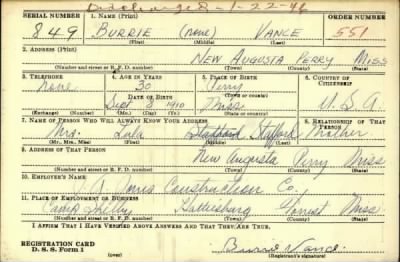 Discharged 8-1-22-46
SERIAL NUMBER 1. NAME (Print) ORDER NUMBER
849 BURRIE (none) VANCE 551
(First) (Middle) (Last)
2. ADDRESS (Print)
NEW AUGUSTA PERRY MISS
(Number and street or R. F. D. number) (Town) (County) (State)
3. TELEPHONE 4. AGE IN YEARS 5. PLACE OF BIRTH 6. COUNTRY OF CITIZENSHIP
none 30 Perry
DATE OF BIRTH (Town or county)
Sept 8 1910 Miss U.S.A.
(Exchange) (Number) (Mo.) (Day) (Yr.) (State or country)
7. NAME OF PERSON WHO WILL ALWAYS KNOW YOUR ADDRESS 8. RELATIONSHIP OF THAT PERSON
Mrs. Lula Stafford Mother
(Mr., Mrs., Miss) (First) (Middle) (Last)
9. ADDRESS OF THAT PERSON
New Augusta Perry Miss
(Number and street or R. F. D. number) (Town) (County) (State)
10. EMPLOYER'S NAME
Construction Co.
11. PLACE OF EMPLOYMENT OR BUSINESS
Camp Shelby Hattiesburg Forrest Miss
(Number and street or R. F. D. number) (Town) (County) (State)
I AFFIRM THAT I HAVE VERIFIED ABOVE ANSWERS AND THAT THEY ARE TRUE.
REGISTRATION CARD
D. S. S. Form 1 (over) Burrie Vance
(Registrant's signature)